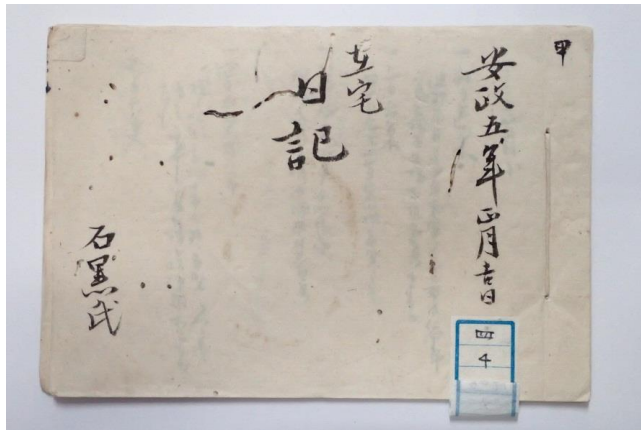 甲
安政五年正月吉日
在宅
日記
石黒氏
四
4